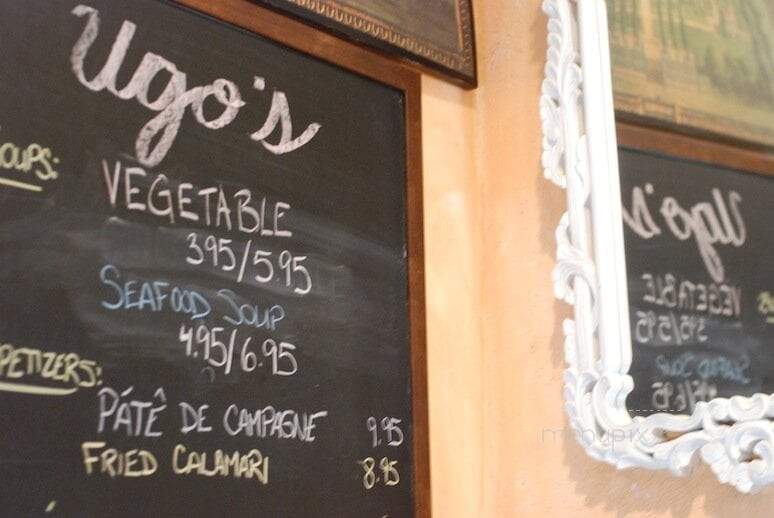 Ugo's
SOUPS:
VEGETABLE
3.95/5.95
SEAFOOD SOUP
4.95/6.95
PETIZERS:
PÁTÊ DE CAMPAGNE 9.95
FRIED CALAMARI 8.95